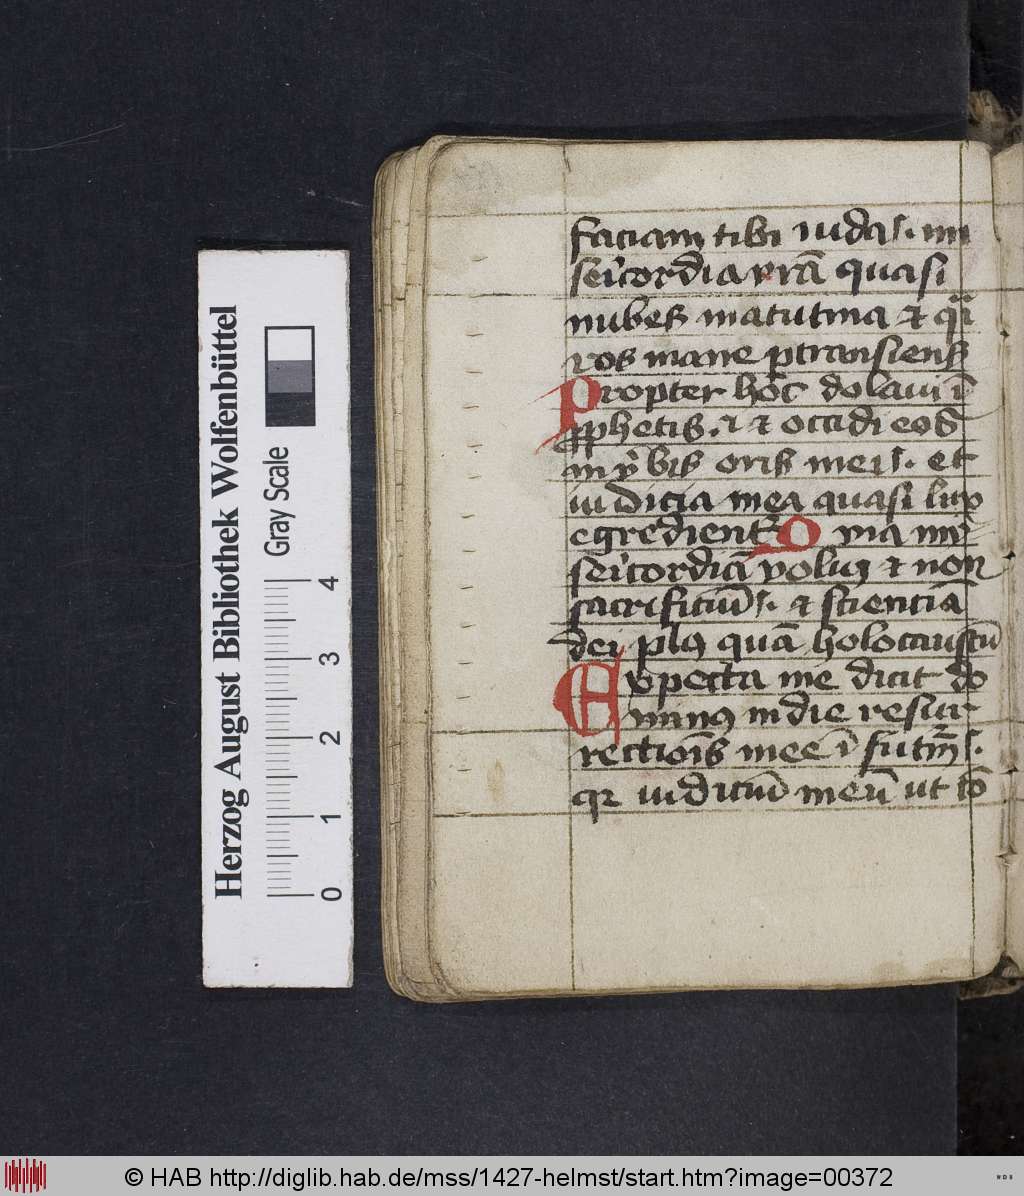 faciam tibi iudas. mi
sericordia vrā quasi
nubes matutina et qͣi
ros mane ꝑtransiens
Propter hoc dolaui ī
ꝓphetis. ⁊ et occidi eos
in v̉bis oris mei. et
iudicia mea quasi lux
egredient᷑ Quia mi
sericordiā volui et non
sacrificiū. et scientiā
dei plꝰ quā holocaustū
Expecta me dicit do
minꝰ in die resur
rectiois mee ī futuꝝ.
qꝛ iudiciū meū ut cō
Herzog August Bibliothek Wolfenbüttel
Gray Scale
0 1 2 3 4
© HAB http://diglib.hab.de/mss/1427-helmst/start.htm?image=00372